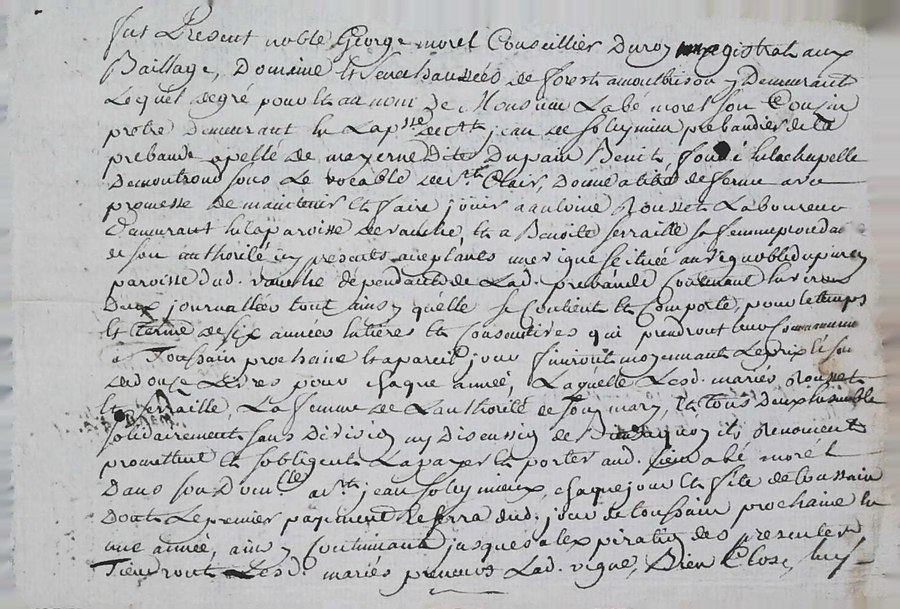 fut Present noble George morel Conseillier Du roy magistrat aux
Baillage, Domaine et Senechaussée de forest a montbrison y Demeurant
Lequel de gré pour et au nom De Monsieur Labé morel son Cousin
pretre Demeurant en La psse de St jean de soleymieu prebandier de la
prebande apellé de mazerne Dite Du pain Benit, fondé en la chapelle
De montrond sous Le vocable de St Clair, Donne a titre de ferme avec
promesse De maintenir et faire jouir a antoine Rousset Laboureur
Demeurant en la paroisse de ranche, et a Benoite serraille sa femme
de son authorité icy presents acceptants une vigne scituée au vignoble
paroisse dud. ranche dépendante de Lad. prebande Contenant environ
Deux journallées tout ainsy qu'elle se Contient et Comporte, pour le temps
et terme de six années entieres et Consecutives qui prendront
a Toussain prochaine et a pareil jour finiront moyennant Le prix et somme
de douze Livres pour chaque année, Laquelle Lesd. mariés Rousset
et serraille, La femme de L'authorité de son mary, et tous Deux ensemble
solidairement sans Division ny Discussion de Biens a quoy ils Renoncent
promettent et sobligent La payer et porter aud. sieur abé morel
Dans son Domlle a St jean soleymieux, chaque jour et fete de toussain
Dont Le premier payement se ferra dud. jour de toussain prochaine en
une année, ainsy Continuant jusques a lexpiration des presentes
Tiendront Lesd. mariés preneurs Lad. vigne, Bien Close,